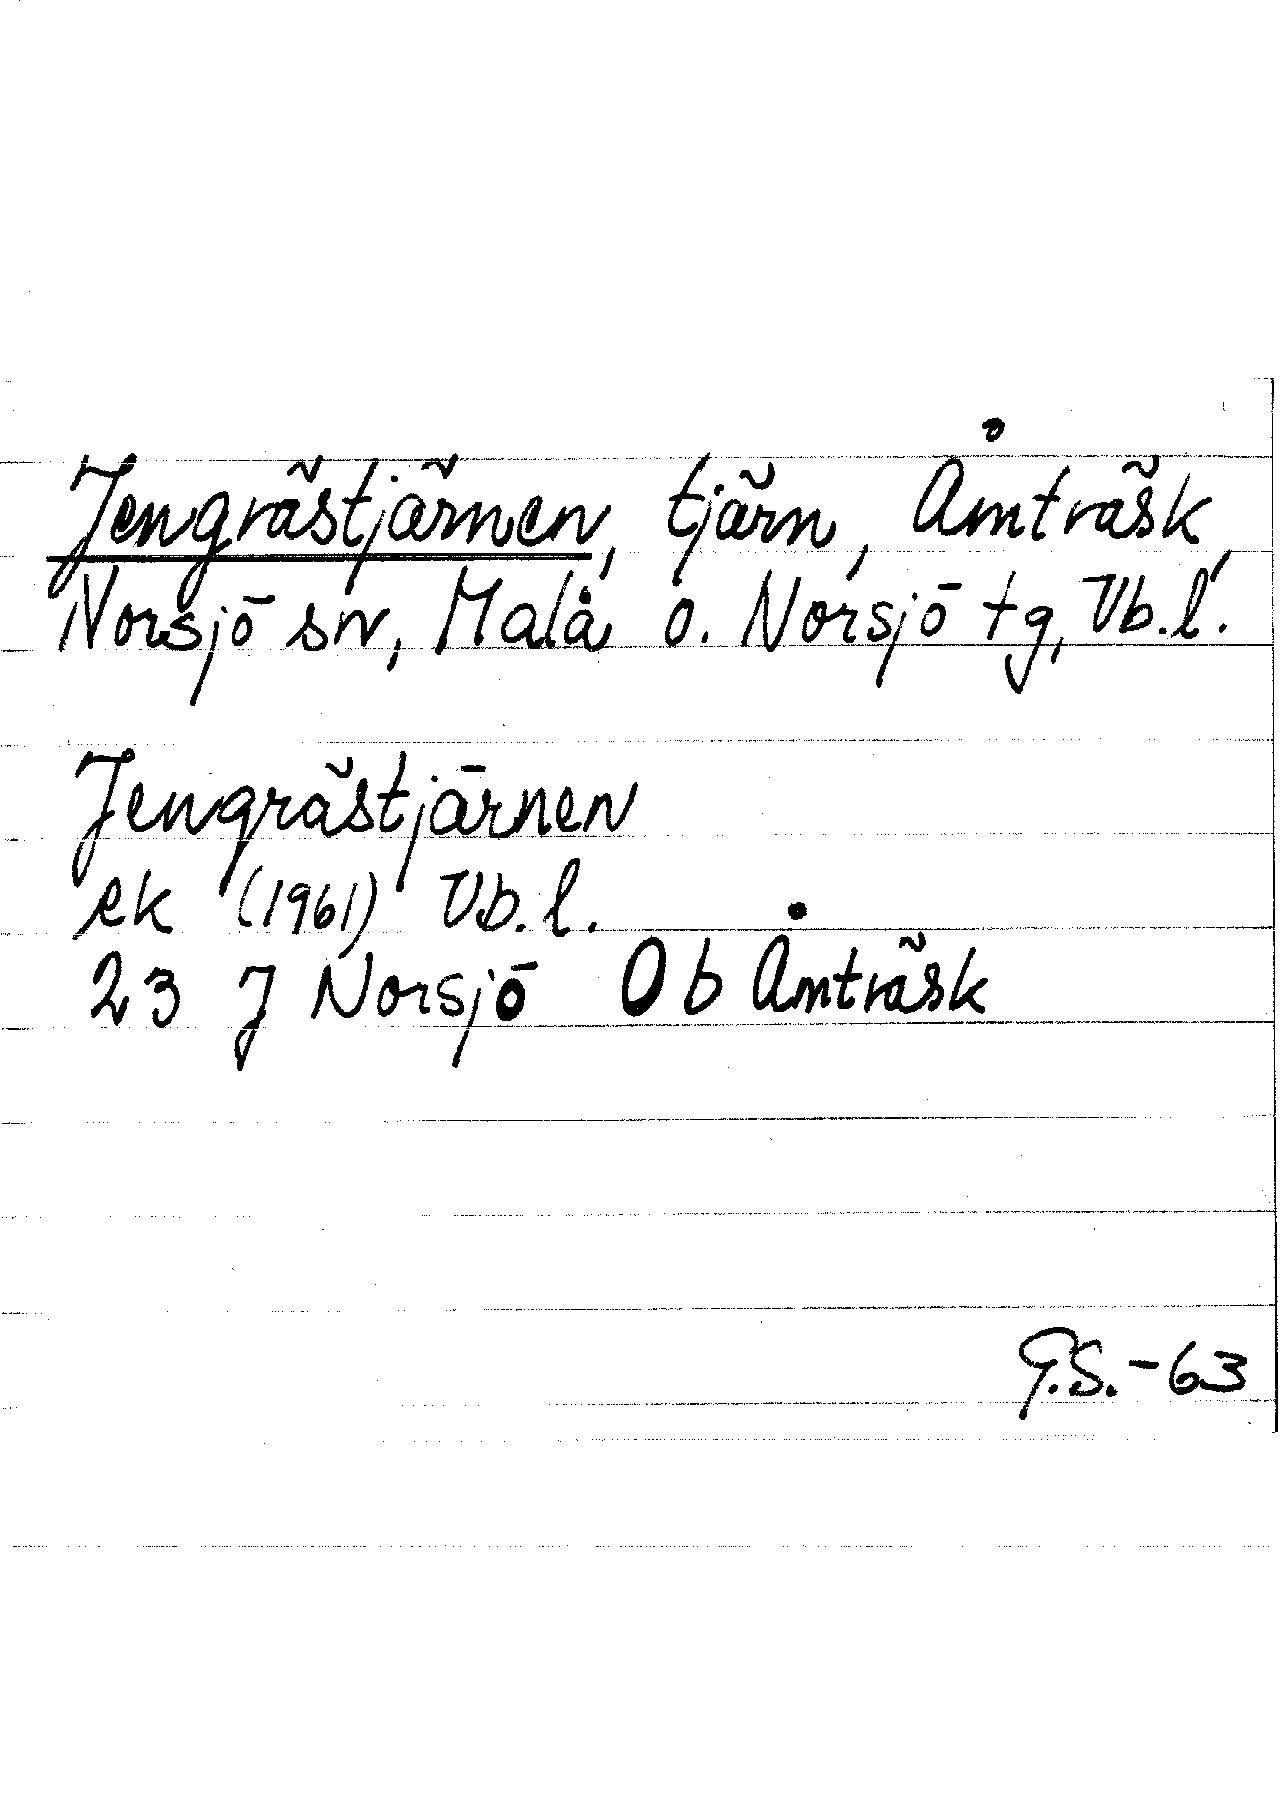 Jengrästjärnen, tjärn, Åmträsk,
Norsjö sn, Malå o. Norsjö tg, Vb.l.
Jengrästjärnen
ek (1961) Vb.l.
23 J Norsjö 0b Åmträsk
G.S.-63